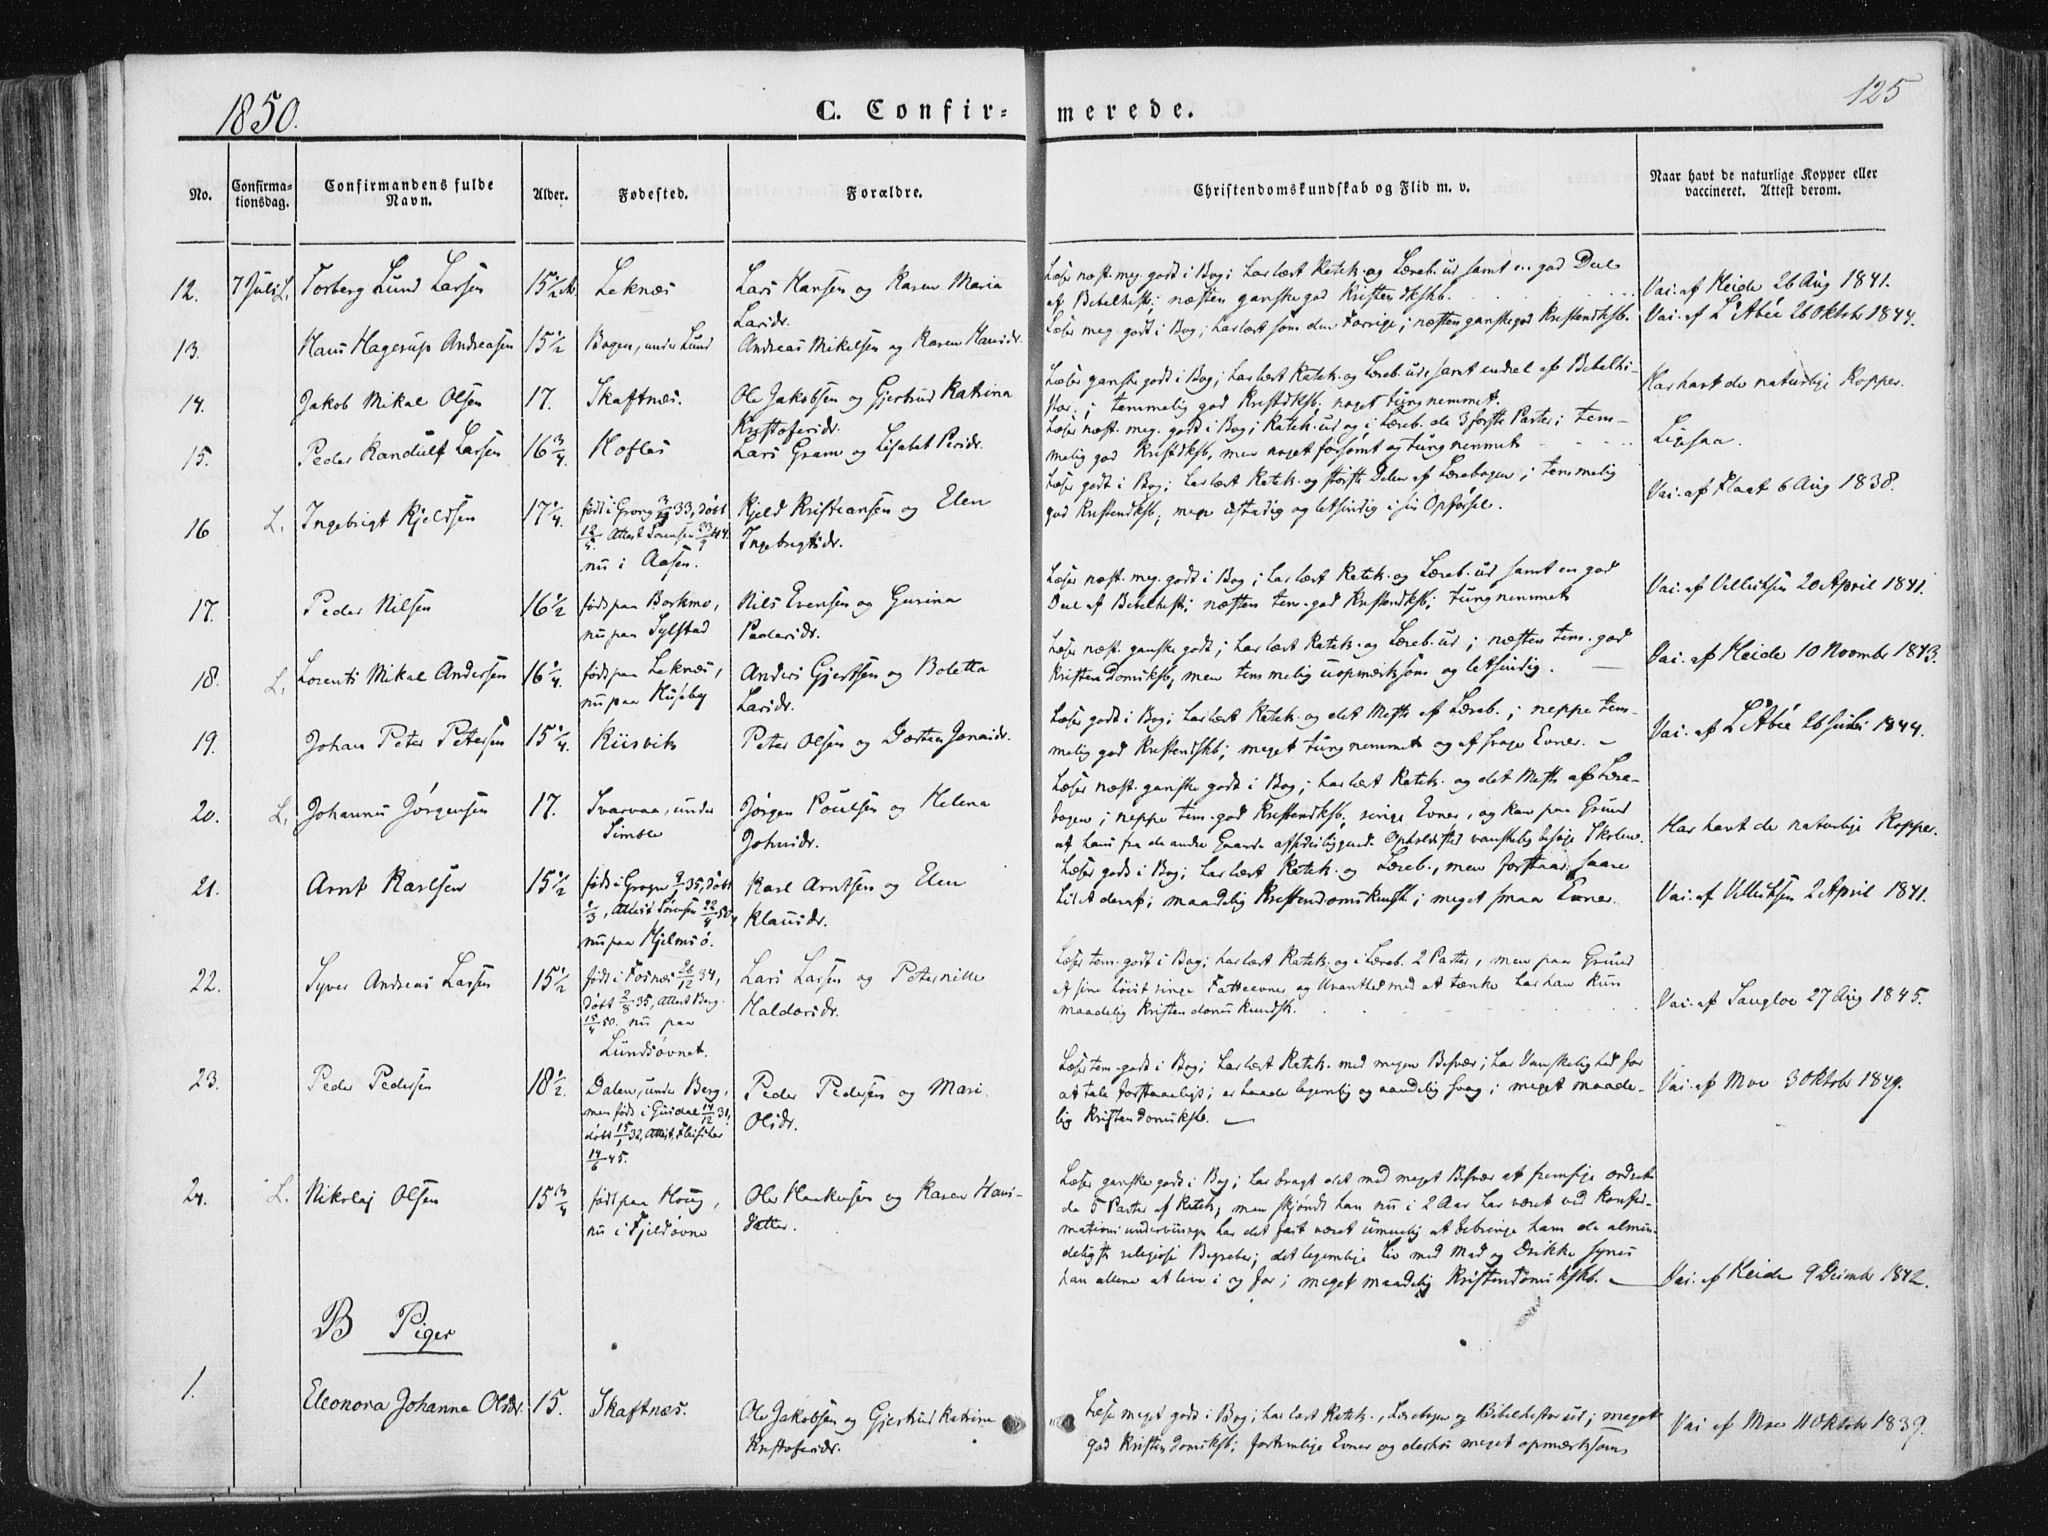 1850.
C. Confir-
merede.
125
No.
Confirma-
tionsdag.
Confirmandens fulde
Navn.
Alder.
Fødested.
Forældre.
Christendomskundskab og Flid m. v.
Naar havt de naturlige Kopper eller
vaccineret. Attest derom.
12. 7 Juli L. Torberg Lund Larsen 15 1/2 Leknæs Lars Hansen og Karen Maria
Larsdr.
Læser næst. meg. godt i Bog; har lært Katek. og Læreb. ud samt en god Del
af Bibelhist; næsten ganske god Kristendkskb.
Vac. af Heide 26 Aug 1841.
13. Hans Hagerup Andreasen 15 1/2 Bogen, under Lund Andreas Mikelsen og Karen Hansdr.
Læser meg. godt i Bog; har lært som den Forrige; næsten ganske god Kristendkskb.
Vac. af L'Abée 26 Oktbr 1844.
14. Jakob Mikal Olsen 17. Skaftnæs. Ole Jakobsen og Gjertrud Katrina
Kristofersdr.
Læser ganske godt i Bog; har lært Katek. og Læreb. ud, samt endel af Bibelhi-
stor.; temmelig god Kristdkskb, noget tungnemmet.
Har havt de naturlige Kopper.
15. Peder Randulf Larsen 16 3/4. Hofles Lars Gram og Lisabet Persdr.
Læser næst. meg. godt i Bog; Katek. ud og i Læreb. de 3 første Parter; tem-
melig god Kristdkskb, men noget forsømt og tungnemmet
Ligesaa.
16 L. Ingebrigt Kjeldsen 17 1/4. født i Grong 33, døbt
12/5. Attest Sørensen 23/9 44.
nu i Aasen.
Kjeld Kristiansen og Elen
Ingebrigtsdr.
Læser godt i Bog; har lært Katek. og største Delen af Lærebogen; temmelig
god Kristendkskb; meget ustadig og letsindig i sin Opførsel.
Vac. af Flaat 6 Aug 1838.
17. Peder Nilsen 16 1/2 født paa Borkmo,
nu paa Sylstad
Nils Evensen og Gurina
Paalsdr.
Læser næst. meg. godt i Bog; har lært Katek. og Læreb. ud samt en god
Del af Bibelhist; næsten tem. god Kristendkskb; tungnemmet
Vac. af Ulriksen 20 April 1841.
18. L. Lorents Mikal Andersen 16 1/4. født paa Leknæs,
nu paa Huseby
Anders Gjertsen og Boletta
Larsdr.
Læser næst. ganske godt; har lært Katek. og Læreb. ud; næsten tem. god
Kristendomskskb, men temmelig uopmærksom og letsindig.
Vac. af Heide 10 Novmbr 1843.
19. Johan Peter Petersen 15 1/4. Kiisvik Peter Olsen og Dorthea Jonasdr.
Læser godt i Bog; har lært Katek. og det Meste af Læreb.; neppe tem-
melig god Kristendskb; meget tungnemmet og af svage Evner.
Vac. af L'Abée 26 1844.
20. L. Johannes Jørgensen 17. Svarvaa, under
Simble
Jørgen Poulsen og Helena
Johnsdr.
Læser næst. ganske godt i Bog; har lært Katek. og det Meste af Lære-
bogen; neppe tem. god Kristendkskb, ringe Evner, og kan paa Grund
af hans fra de andre Gaarde afsidesliggende Opholdssted vanskelig besøge Skolen.
Har havt de naturlige Kopper.
21. Arnt Karlsen 15 1/2 født i Grong 35, døbt
1/3, Attest Sørensen 22/4 50,
nu paa Hjelmsø.
Karl Arntsen og Elen
Klausdr.
Læser godt i Bog; har lært Katek. og Læreb., men forstaar saare
Lidet deraf; maadelig Kristendomskundsk; meget smaa Evner.
Vac. af Ulriksen 2 April 1841.
22. Syver Andreas Larsen 15 1/2 født i Fosnæs 26/12 34,
døbt 2/8 35, Attest Berg
15/4 50. nu paa
Lundsøvnet.
Lars Larsen og Peternille
Haldorsdr.
Læser tem. godt i Bog; har lært Katek. og i Læreb. 2 Parter, men paa Grund
af sine høist ringe Fatteevner og Uvanthed med at tænke har han kun
maadelig Kristendomskundsk.
Vac. af Saugloe 27 Aug 1845.
23. Peder Pedersen 18 1/2. Dalen, under Berg,
men født i Guldal 14/12 31,
døbt 15/1 32, Attest, Fleischer
14/6 45.
Peder Pedersen og Mari
Olsdr.
Læser tem. godt i Bog; har lært Katek. med megen Besvær; har Vanskelighed for
at tale forstaaeligt; er baade legemlig og aandelig svag; meget maade-
lig Kristendomskskb.
Vac. af Moe 3 Oktobr 1849.
24. L. Nikolaj Olsen 15 3/4 født paa Houg,
nu i Fjeldøvne
Ole Haakensen og Karen Hans-
datter.
Læser ganske godt i Bog; har bragt det med meget Besvær at fremsige ordret
de 5 Parter af Katek, men skjøndt han nu i 2 Aar har været ved Konfir-
mationsundervisnge har det fast været umuelig at bebringe ham de almin-
deligste religiøse Begreber; det legemlige Liv med Mad og Drikke synes
han allene at leve i og for; meget maadelig Kristendomskskb.
Vac. af Heide 9 Decmbr 1842.
B Piger
1. Eleonora Johanna Olsdr. 15. Skaftnæs. Ole Jakobsen og Gjertrud Katrine
Kristofersdr.
Læser meget godt i Bog; har lært Katek., Lærebogen og Bibelhistor ud; meget
god Kristendomskskb; fortrinlige Evner og derhos meget opmærksom
Vac af Moe 11 Oktobr 1839.